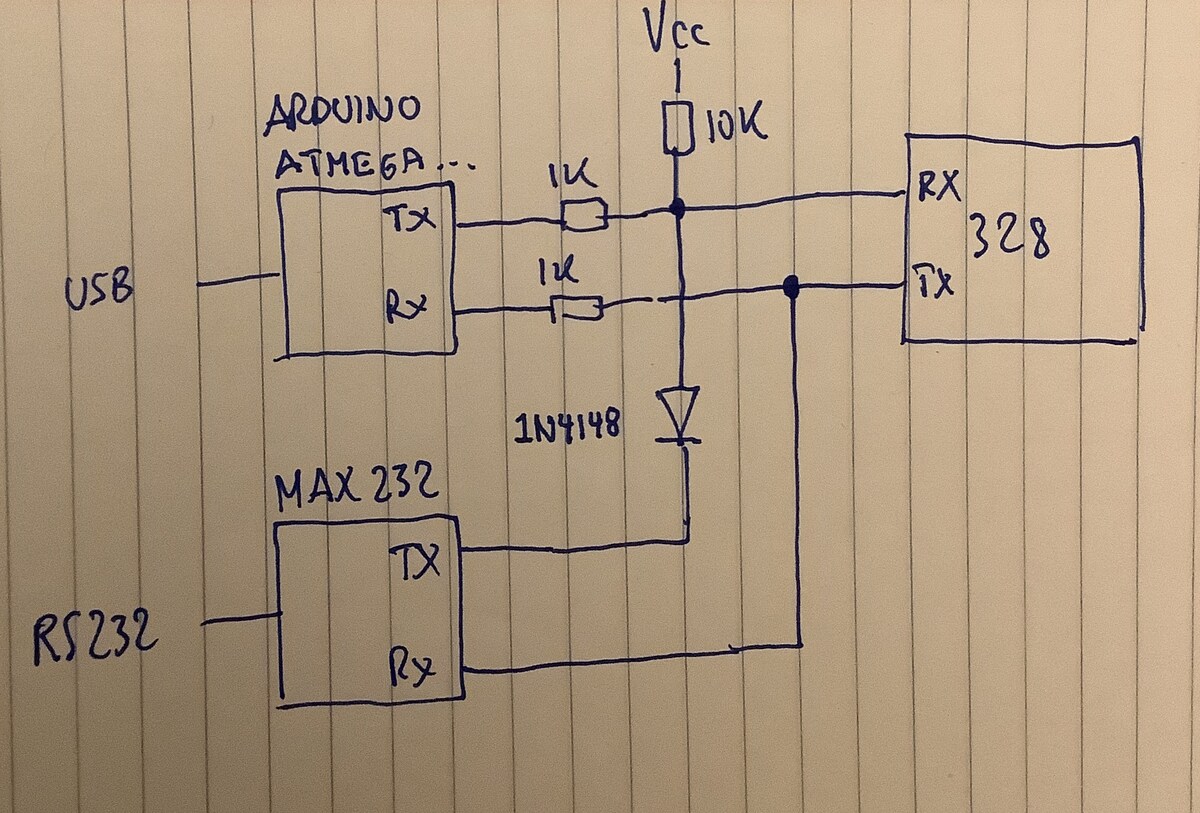 Vcc
10K
ARDUINO
ATMEGA...
1K
TX
RX
328
1K
USB
Rx
TX
1N4148
MAX 232
TX
RS232
Rx